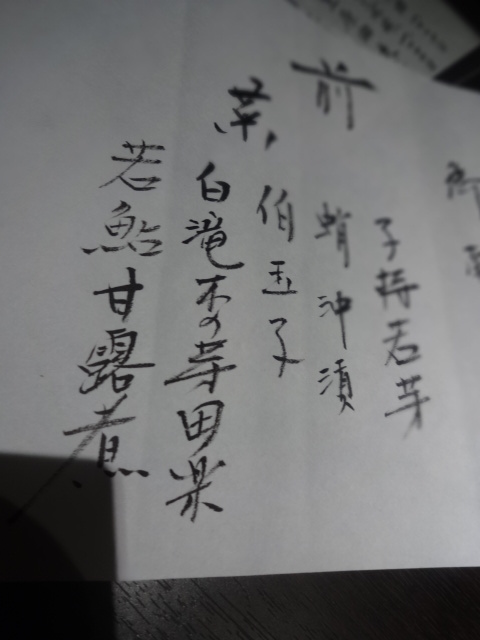 前菜
子持若芽
蛸沖漬
伯玉子
白滝木の芽田楽
若鮎甘露煮